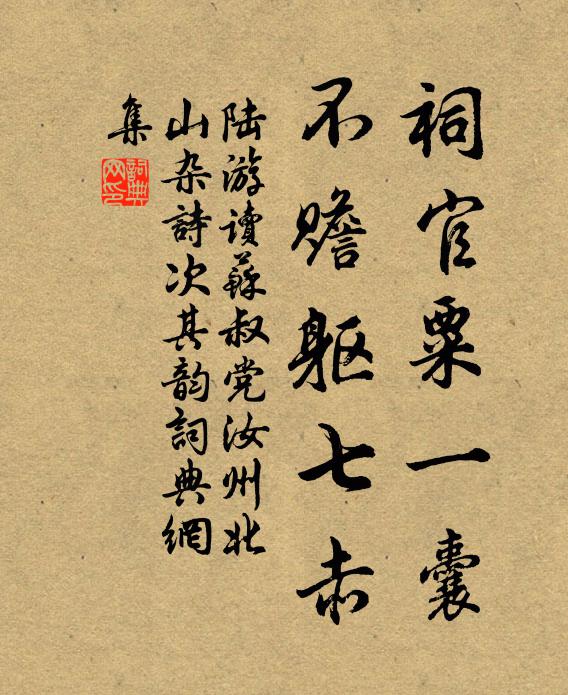 祠官粟一囊
不赡躯七赤
陆游读蘇叔党汝州北
山杂詩次其韵詞典網
集
詞典
网印